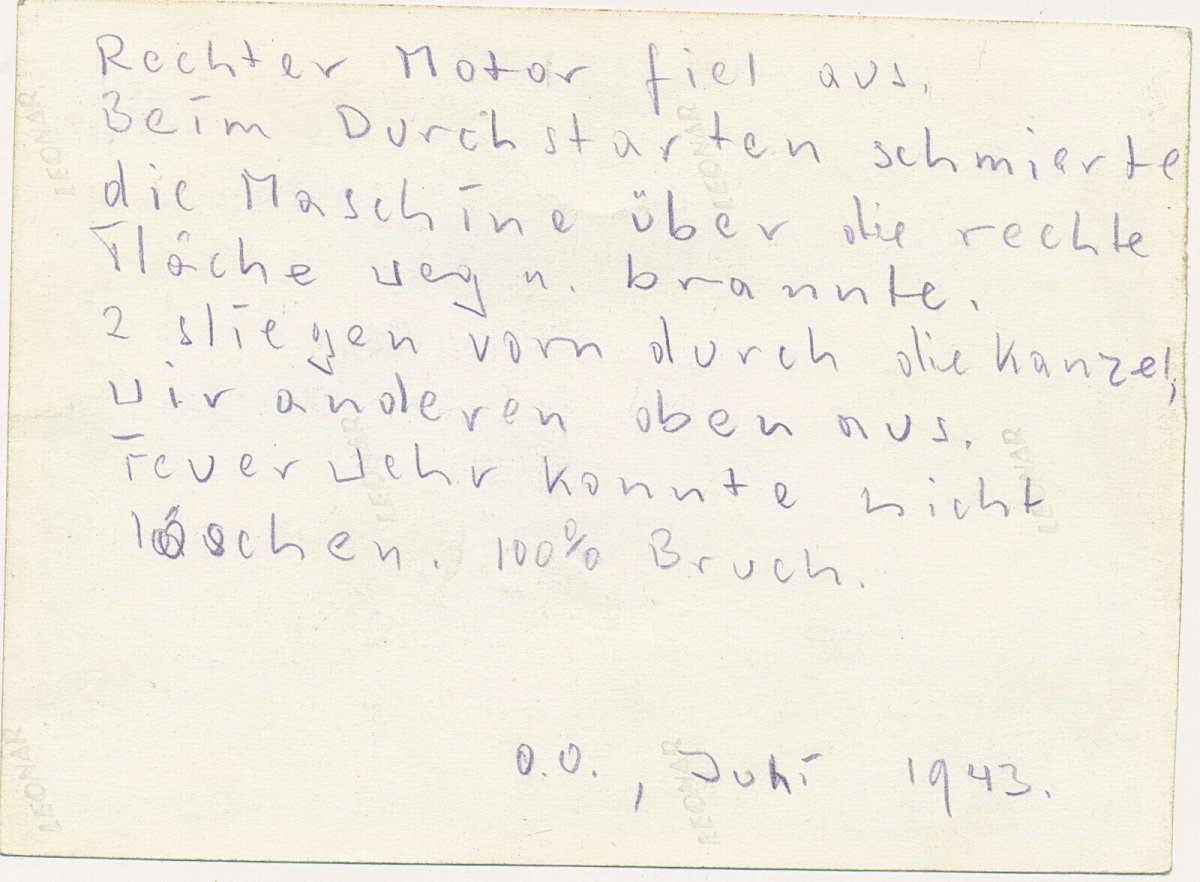 Rechter Motor fiel aus.
Beim Durchstarten schmierte
die Maschine über die rechte
Fläche weg u. brannte.
2 stiegen vorn durch die Kanzel,
wir anderen oben aus.
Feuerwehr konnte nicht
löschen. 100% Bruch.
O.U., 1943.
LEONAR
LEONAR
LEONAR
LEONAR
LEONAR
LEONAR